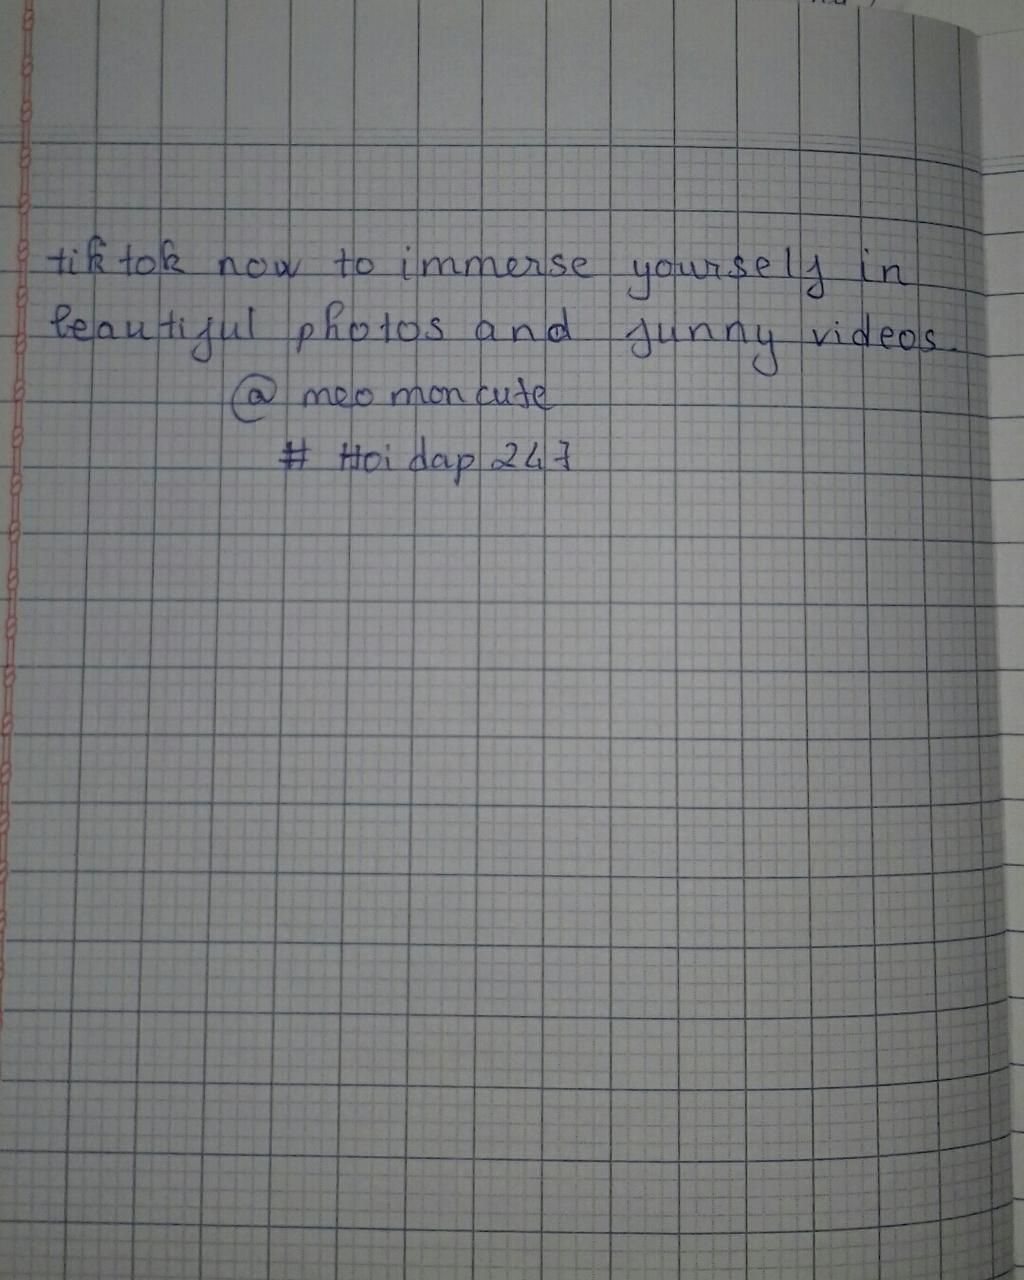 tik tok now to immerse yourself in
beautiful photos and funny videos.
@ meo mon cute
# Hoi dap 247